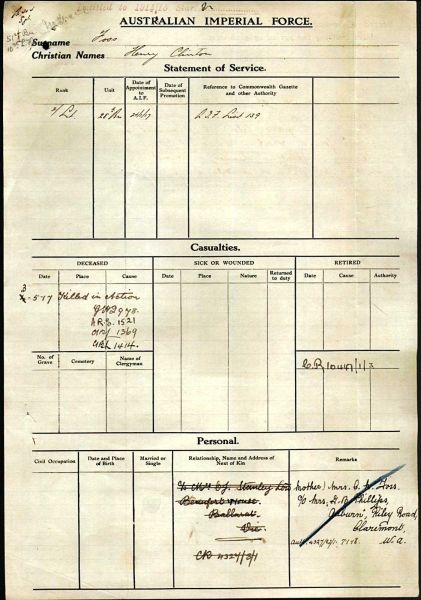 Entitled to 1914/15 Star.
AUSTRALIAN IMPERIAL FORCE.
Surname Foss
Christian Names Henry Clinton
Statement of Service.
Rank Unit Date of Appointment to A.I.F. Date of Subsequent Promotion Reference to Commonwealth Gazette and other Authority
2/Lt. 28 Bn A.I.F. List 139
Casualties.
DECEASED SICK OR WOUNDED RETIRED
Date Place Cause Date Place Nature Returned to duty Date Cause Authority
3-5-17 Killed in Action
978.
1521
1369
1414.
No. of Grave Cemetery Name of Clergyman
Personal.
Civil Occupation Date and Place of Birth Married or Single Relationship, Name and Address of Next of Kin Remarks
Stanley Low
Beaufort House
Ballarat
Vic
4327/3/1
(Mother) Mrs. Foss,
c/o Mrs. Phillips,
Riley Road,
Claremont,
W.A.